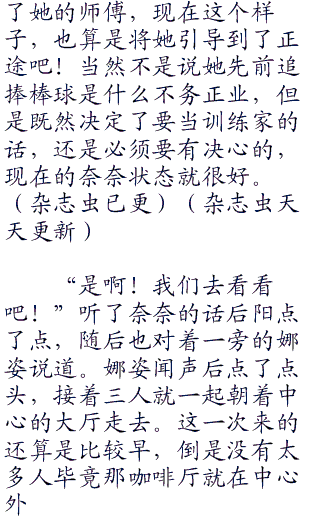 了她的师傅，现在这个样
子，也算是将她引导到了正
途吧！当然不是说她先前追
捧棒球是什么不务正业，但
是既然决定了要当训练家的
话，还是必须要有决心的，
现在的奈奈状态就很好。
（杂志虫已更）（杂志虫天
天更新）
“是啊！我们去看看
吧！”听了奈奈的话后阳点
了点，随后也对着一旁的娜
姿说道。娜姿闻声后点了点
头，接着三人就一起朝着中
心的大厅走去。这一次来的
还算是比较早，倒是没有太
多人毕竟那咖啡厅就在中心
外